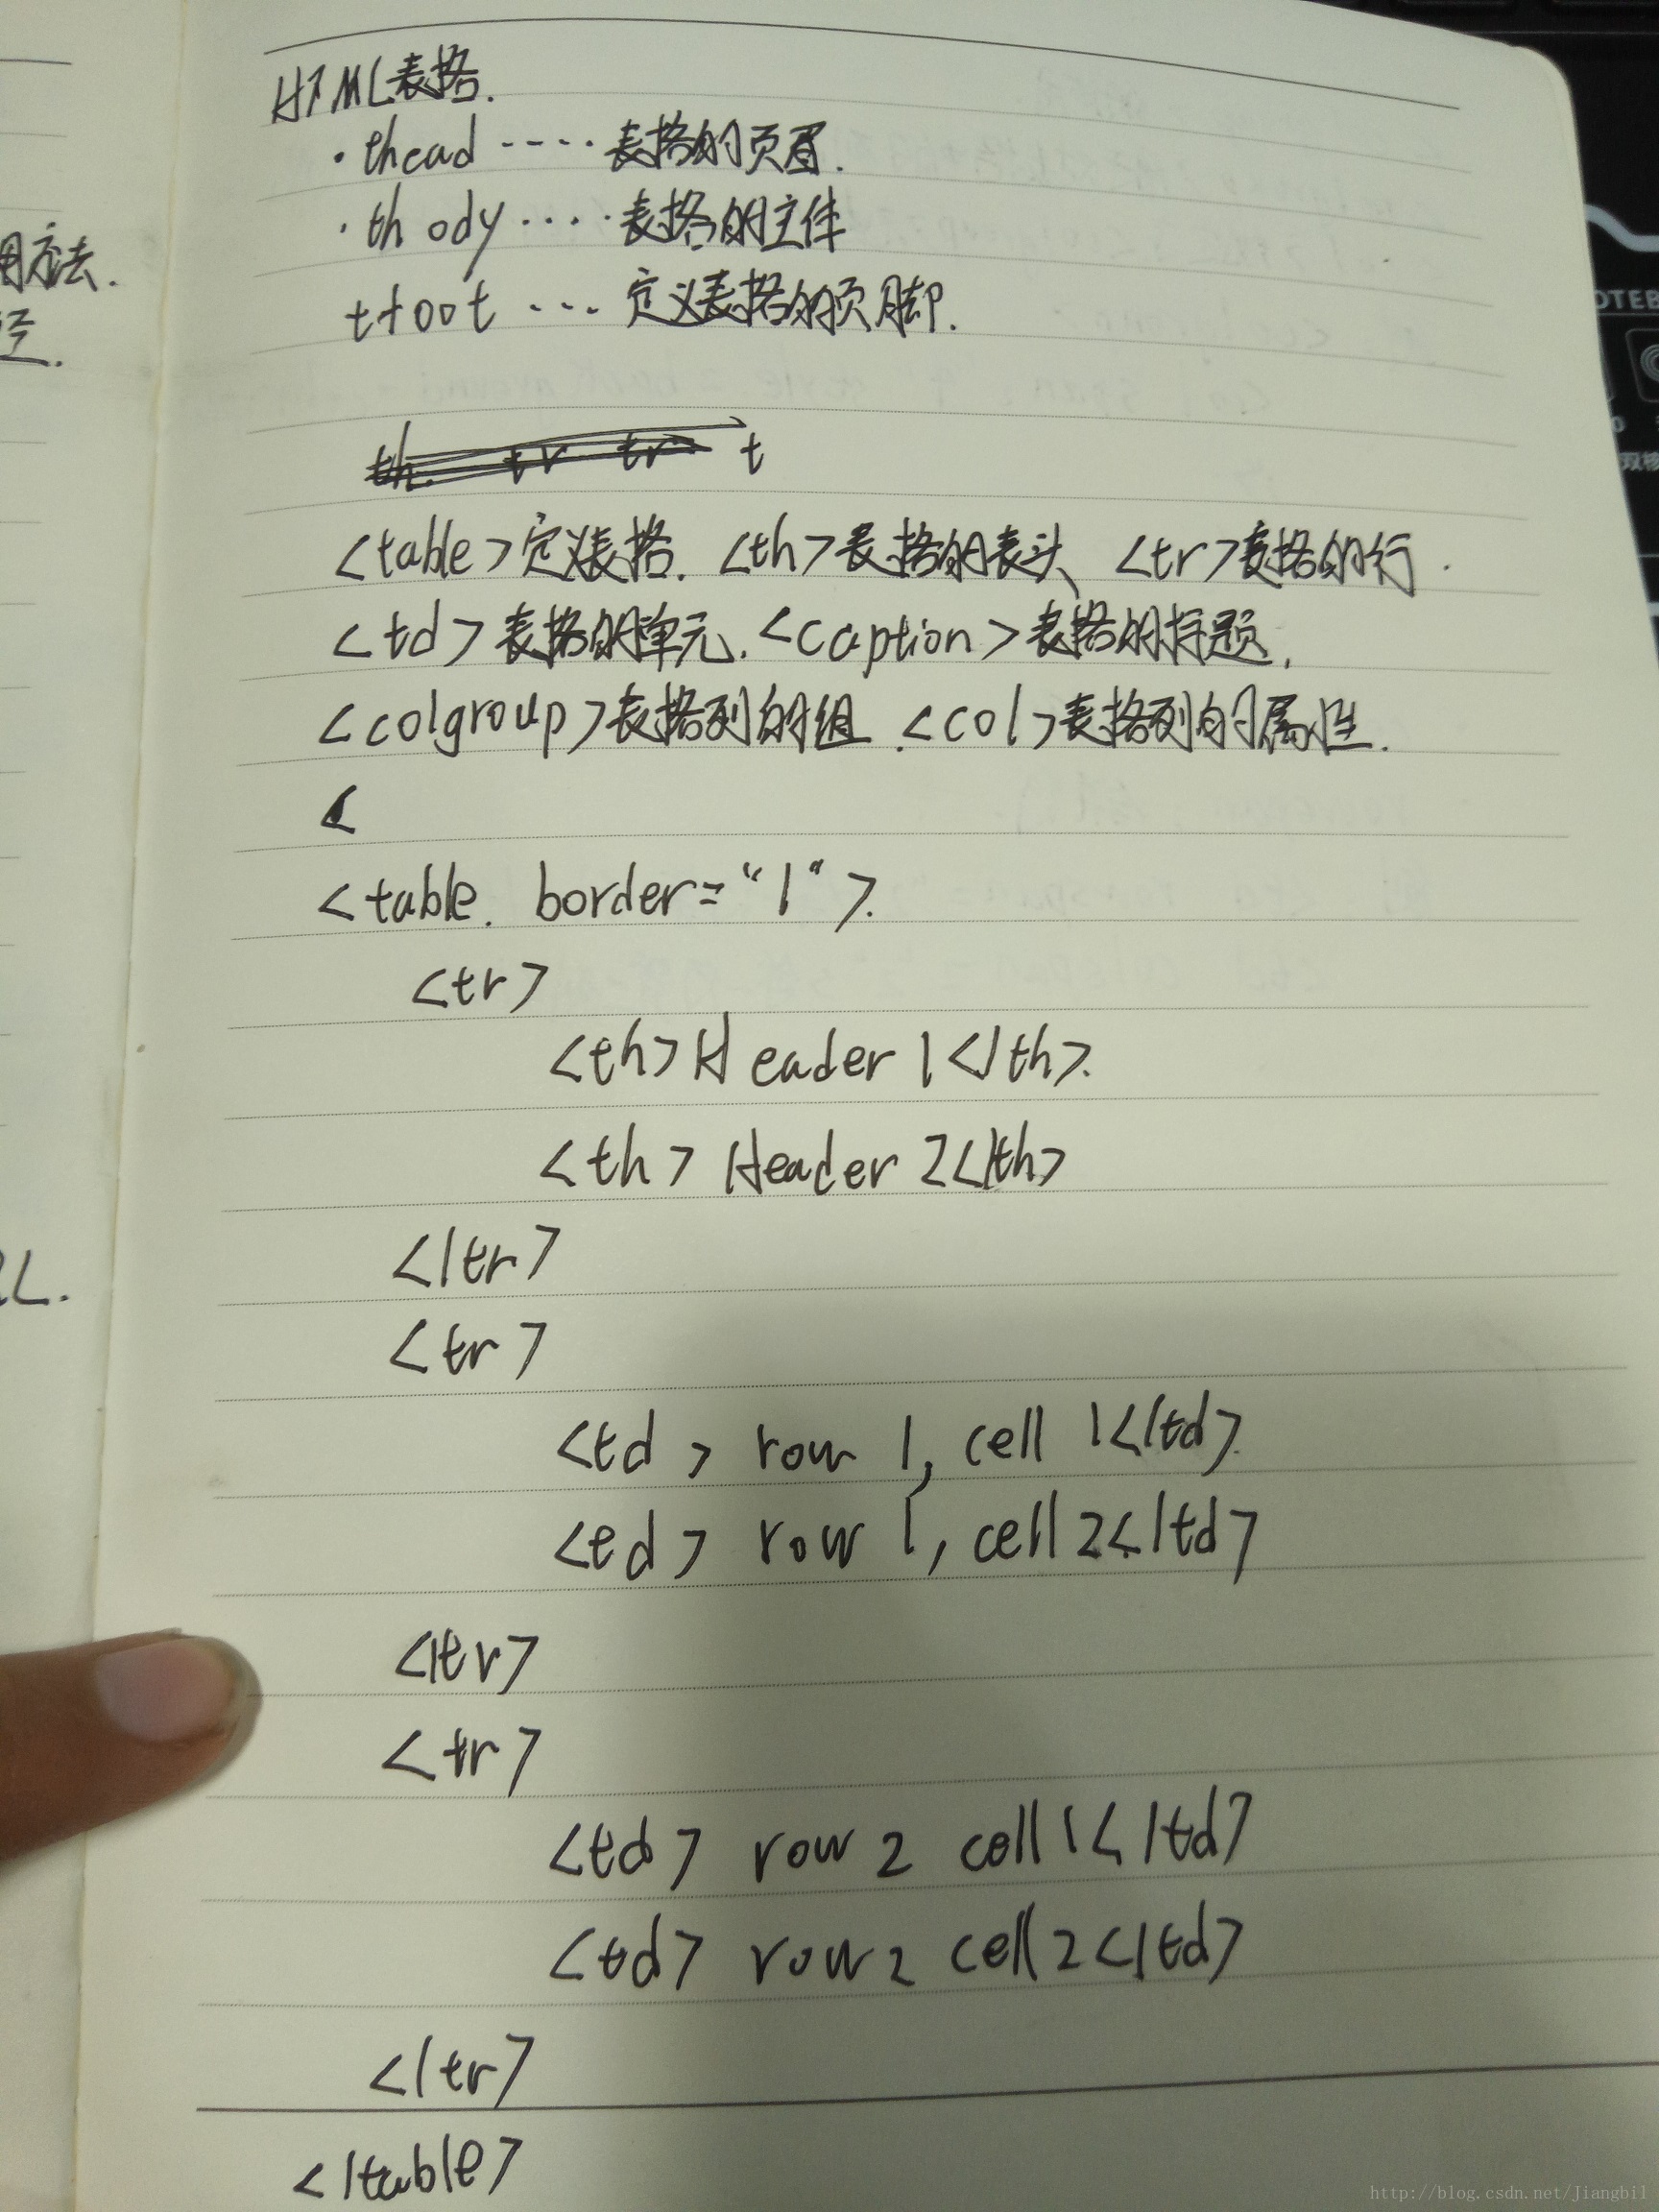 HTML表格.
·thead ····表格的页眉.
·thody ····表格的主体
tfoot ···定义表格的页脚.
th. tr tr t
<table>定义表格. <th>表格的表头、<tr>表格的行.
<td>表格的单元.<caption>表格的标题.
<colgroup>表格列的组.<col>表格列的属性.
<
<table. border="1">.
<tr>
<th>Header 1</th>.
<th> Header 2</th>
</tr>
<tr>
<td> row 1, cell 1</td>.
<td> row 1, cell 2</td>
</tr>
<tr>
<td> row 2 cell 1</td>
<td> row 2 cell 2</td>
</tr>
</table>
用方法.
L.
OTEB
双核
http://blog.csdn.net/Jiangbil